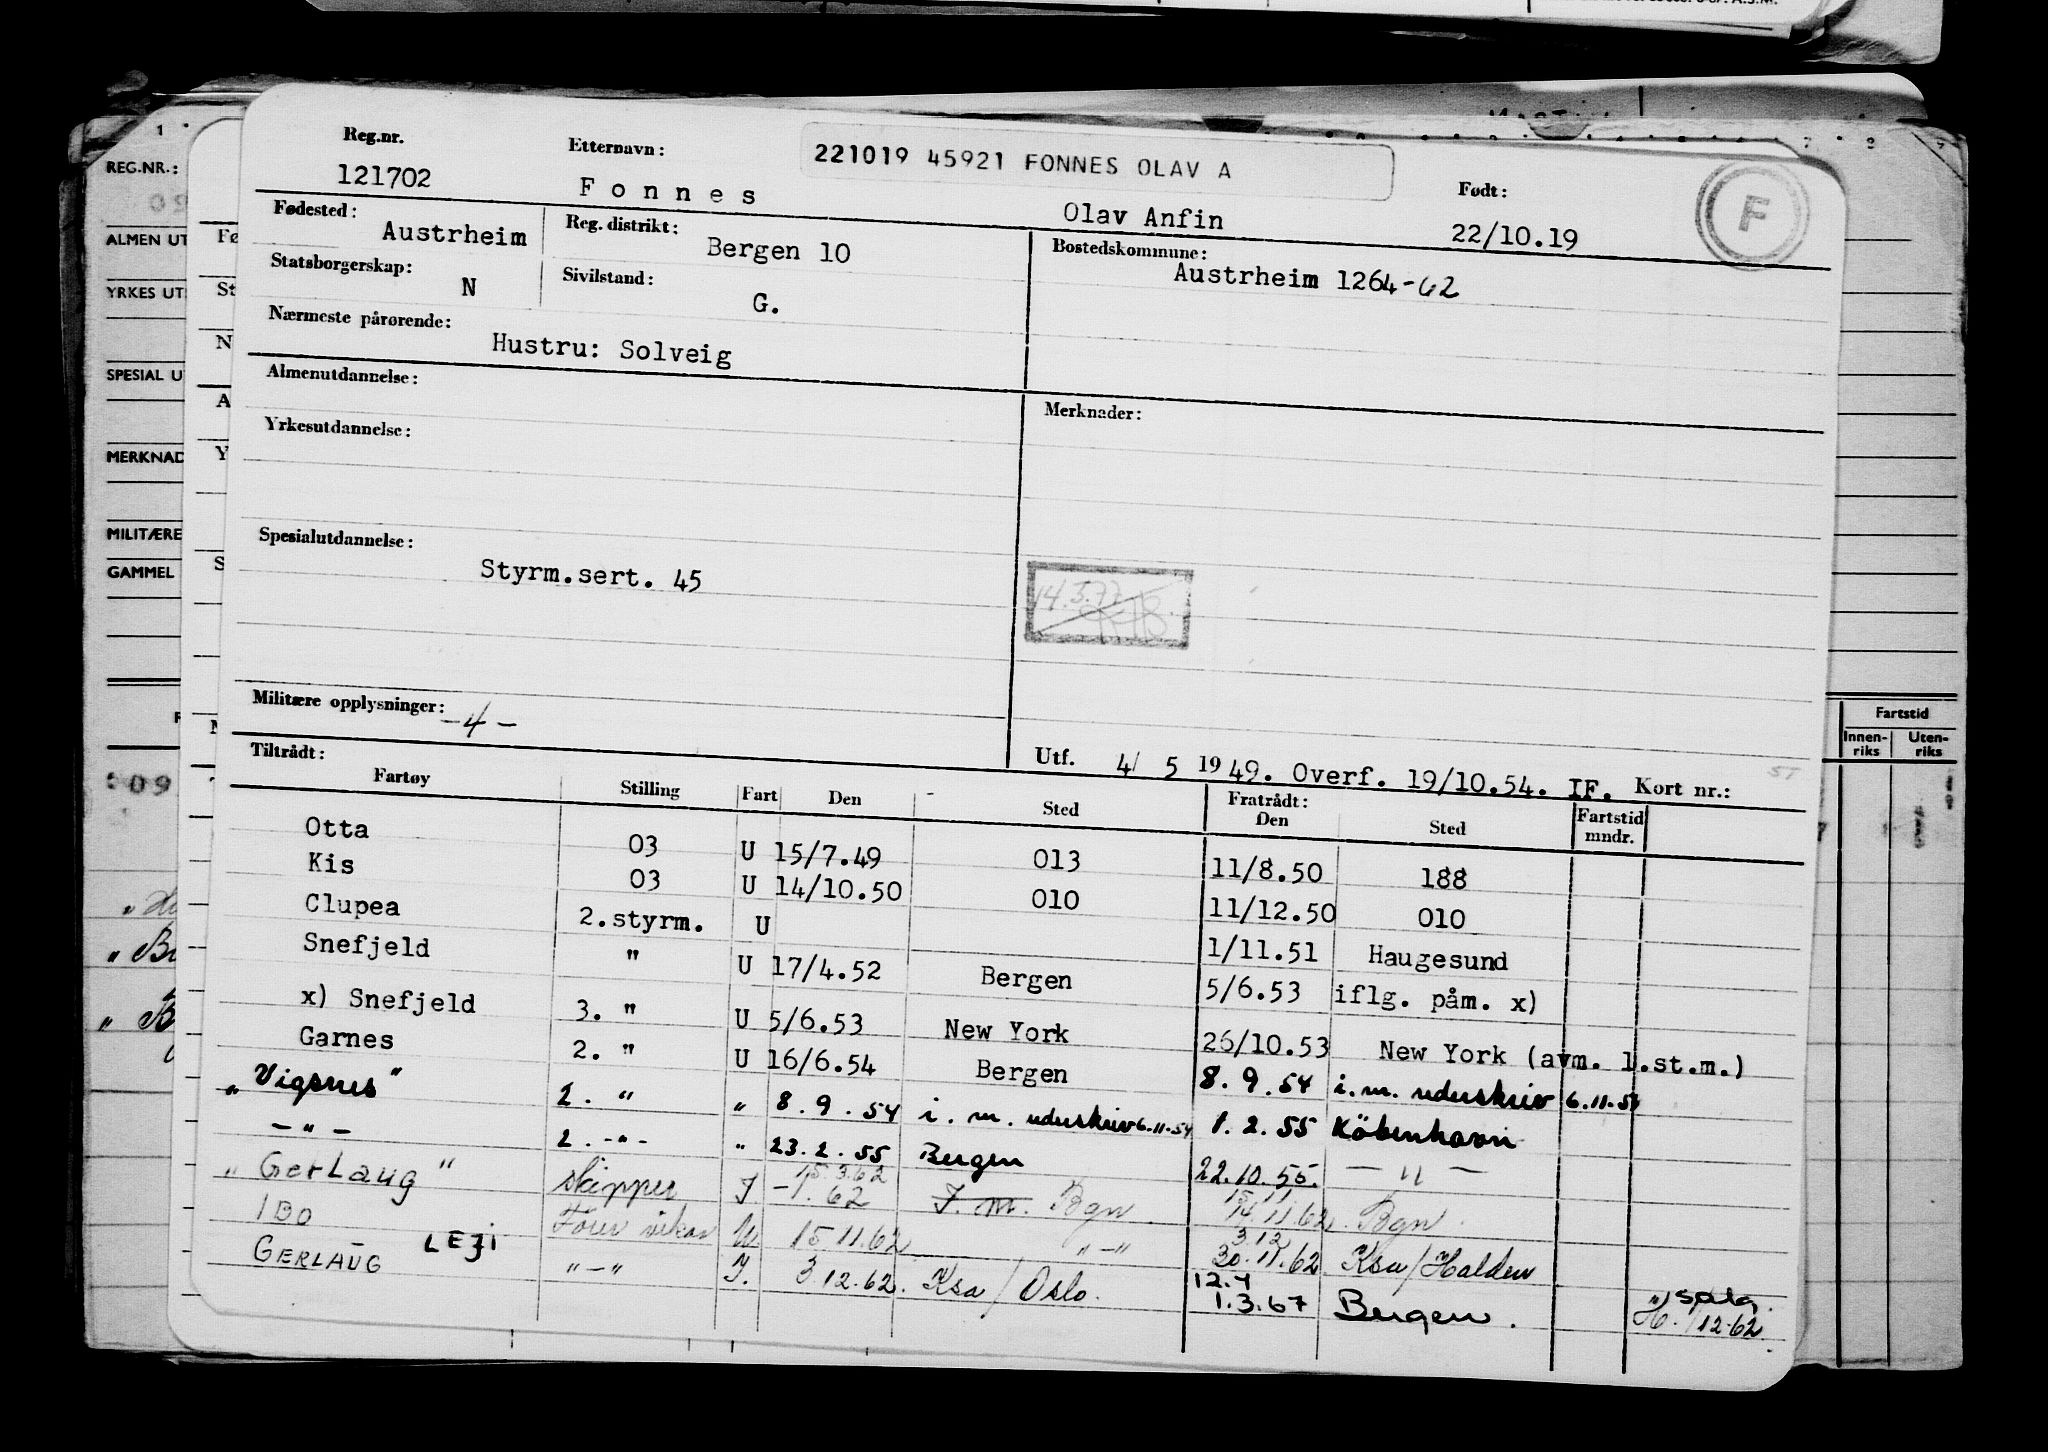 Reg.nr. Etternavn: 221019 45921 FONNES OLAV A Født:
121702 Fonnes Olav Anfin 22/10.19 F
Fødested: Austrheim Reg. distrikt: Bergen 10 Bostedskommune: Austrheim 1264-62
Statsborgerskap: N Sivilstand: G.
Nærmeste pårørende: Hustru: Solveig
Almenutdannelse: Merknader:
Yrkesutdannelse:
Spesialutdannelse: Styrm.sert. 45
14.5.77
Militære opplysninger: -4-
Tiltrådt: Utf. 4/ 5 1949. Overf. 19/10.54. IF. Kort nr.:
Fartøy Stilling Fart Den Sted Fratrådt: Den Sted Fartstid mndr.
Otta 03 U 15/7.49 013 11/8.50 188
Kis 03 U 14/10.50 010 11/12.50 010
Clupea 2.styrm. U 1/11.51 Haugesund
Snefjeld " U 17/4.52 Bergen 5/6.53 iflg. påm. x)
x) Snefjeld 3. " U 5/6.53 New York 26/10.53 New York (avm. 1.st.m.)
Garnes 2. " U 16/6.54 Bergen 8.9.54 i.m. uderskriv 6.11.54
"Vigsnes" 2. " " 8.9.54 i.m. uderskriv 6.11.54 1.2.55 Köbenhavn
-"- 2. -"- " 23.2.55 Bergen 22.10.55. -"-
"Gerlaug" skipper I 15.3.62 -1.62 I.m. Bgn 15.11 14.11.62. Bgn.
IBO Fører vikar U 15.11.62 "-" 3.12 30.11.62 Ksa/Halden
GERLAUG LEJI "-" I. 3 12.62. Ksa/Oslo. 12.4 1.3.67 Bergen. "/salg. 12.62.
REG.NR.:
ALMEN UT
YRKES UT
SPESIAL U
MERKNAD
MILITÆRE
GAMMEL
Fartstid
Innen-riks Uten-riks